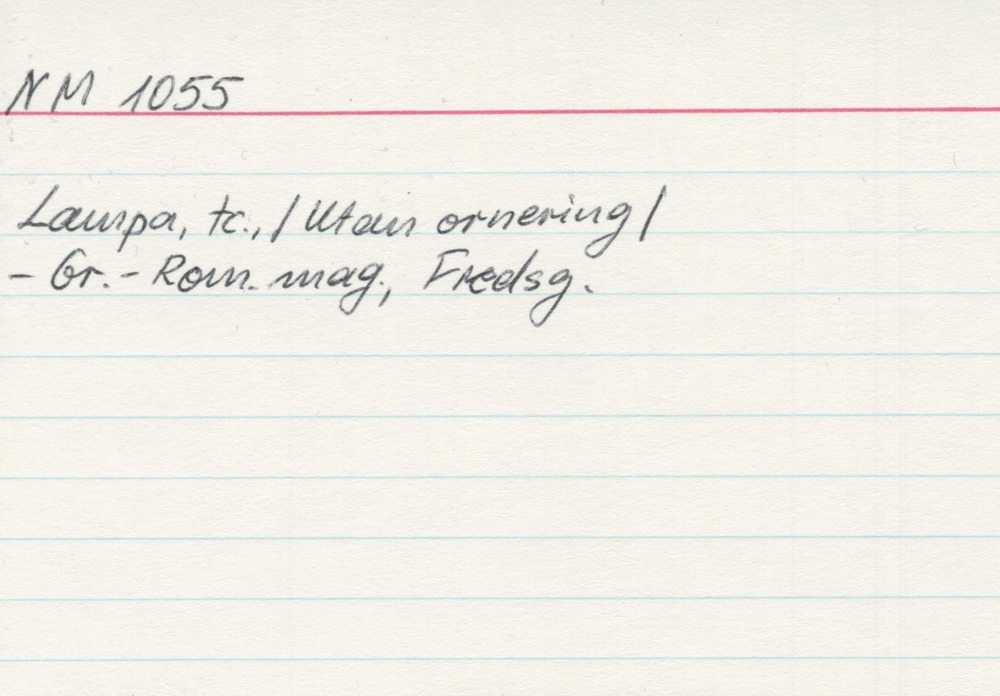 NM 1055
Lampa, tc., / Utan ornering /
- Gr. - Rom. mag., Fredsg.